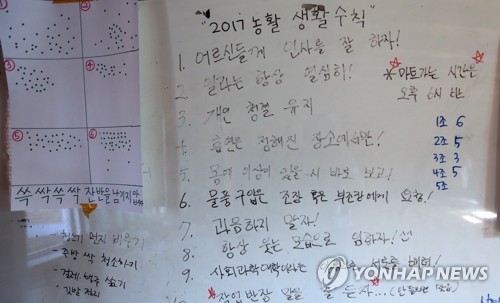 "2017 농활 생활수칙"
1. 어르신들께 인사를 잘 하자!
2 일과는 항상 열심히!
3. 개인 청결 유지
4. 흡연은 정해진 장소에서만!
5. 몸에 이상이 있을 시 바로 보고!
6. 물품구입은 조장 혹은 부조장에게 요청!
7. 과음하지 말자!
8. 항상 웃는 모습으로 임하자!
9. 사회과학대학이라는
*작업반장 말을 잘 듣자...
*마트가는 시간은*
오후 6시 반
1조 6
2조 5
3조 3
4조 5
5조
① ②
③ ④
⑤ ⑥
쓱 싹 쓱 싹 잔반을 남기지마
- 청소기 먼지 비우기
- 주방 싹 청소하기
- 걸레
YONHAP NEWS
연합뉴스